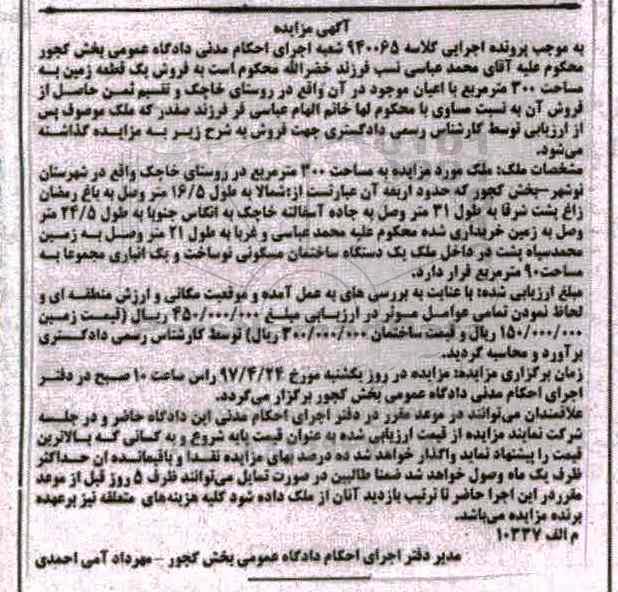 آگهی مزایده
به موجب پرونده اجرایی کلاسه ۹۴۰۰۶۵ شعبه اجرای احکام مدنی دادگاه عمومی بخش کجور
محکوم علیه آقای محمد عباسی نسب فرزند خضرالله محکوم است به فروش یک قطعه زمین به
مساحت ۳۰۰ مترمربع با اعیان موجود در آن واقع در روستای خاچک و تقسیم ثمن حاصل از
فروش آن به نسبت مساوی با محکوم لها خانم الهام عباسی فر فرزند صفدر که ملک موصوف پس
از ارزیابی توسط کارشناس رسمی دادگستری جهت فروش به شرح زیر به مزایده گذاشته
می‌شود.
مشخصات ملک: ملک مورد مزایده به مساحت ۳۰۰ مترمربع در روستای خاچک واقع در شهرستان
نوشهر-بخش کجور که حدود اربعه آن عبارتست از:شمالا به طول ۱۶/۵ متر وصل به باغ رمضان
زاغ پشت شرقا به طول ۳۱ متر وصل به جاده آسفالته خاچک به انگاس جنوبا به طول ۲۴/۵ متر
وصل به زمین خریداری شده محکوم علیه محمد عباسی و غربا به طول ۲۱ متر وصل به زمین
محمدسیاه پشت در داخل ملک یک دستگاه ساختمان مسکونی نوساخت و یک انباری مجموعا به
مساحت۹۰ مترمربع قرار دارد.
مبلغ ارزیابی شده: با عنایت به بررسی های به عمل آمده و موقعیت مکانی و ارزش منطقه ای و
لحاظ نمودن تمامی عوامل موثر در ارزیابی مبلغ ۴۵۰/۰۰۰/۰۰۰ ریال (قیمت زمین
۱۵۰/۰۰۰/۰۰۰ ریال و قیمت ساختمان ۳۰۰/۰۰۰/۰۰۰ ریال) توسط کارشناس رسمی دادگستری
برآورد و محاسبه گردید.
زمان برگزاری مزایده: مزایده در روز یکشنبه مورخ ۹۷/۴/۲۴ راس ساعت ۱۰ صبح در دفتر
اجرای احکام مدنی دادگاه عمومی بخش کجور برگزار می‌گردد.
علاقمندان می‌توانند در موعد مقرر در دفتر اجرای احکام مدنی این دادگاه حاضر و در جلسه
شرکت نمایند مزایده از قیمت ارزیابی شده به عنوان قیمت پایه شروع و به کسانی که بالاترین
قیمت را پیشنهاد نماید واگذار خواهد شد ده درصد بهای مزایده نقدا و باقیمانده ان حداکثر
ظرف یک ماه وصول خواهد شد ضمنا طالبین در صورت تمایل می‌توانند ظرف ۵ روز قبل از موعد
مقرردر این اجرا حاضر تا ترتیب بازدید آنان از ملک داده شود کلیه هزینه‌های متعلقه نیز برعهده
برنده مزایده می‌باشد.
م الف ۱۰۳۳۷
مدیر دفتر اجرای احکام دادگاه عمومی بخش کجور -مهرداد آمی احمدی